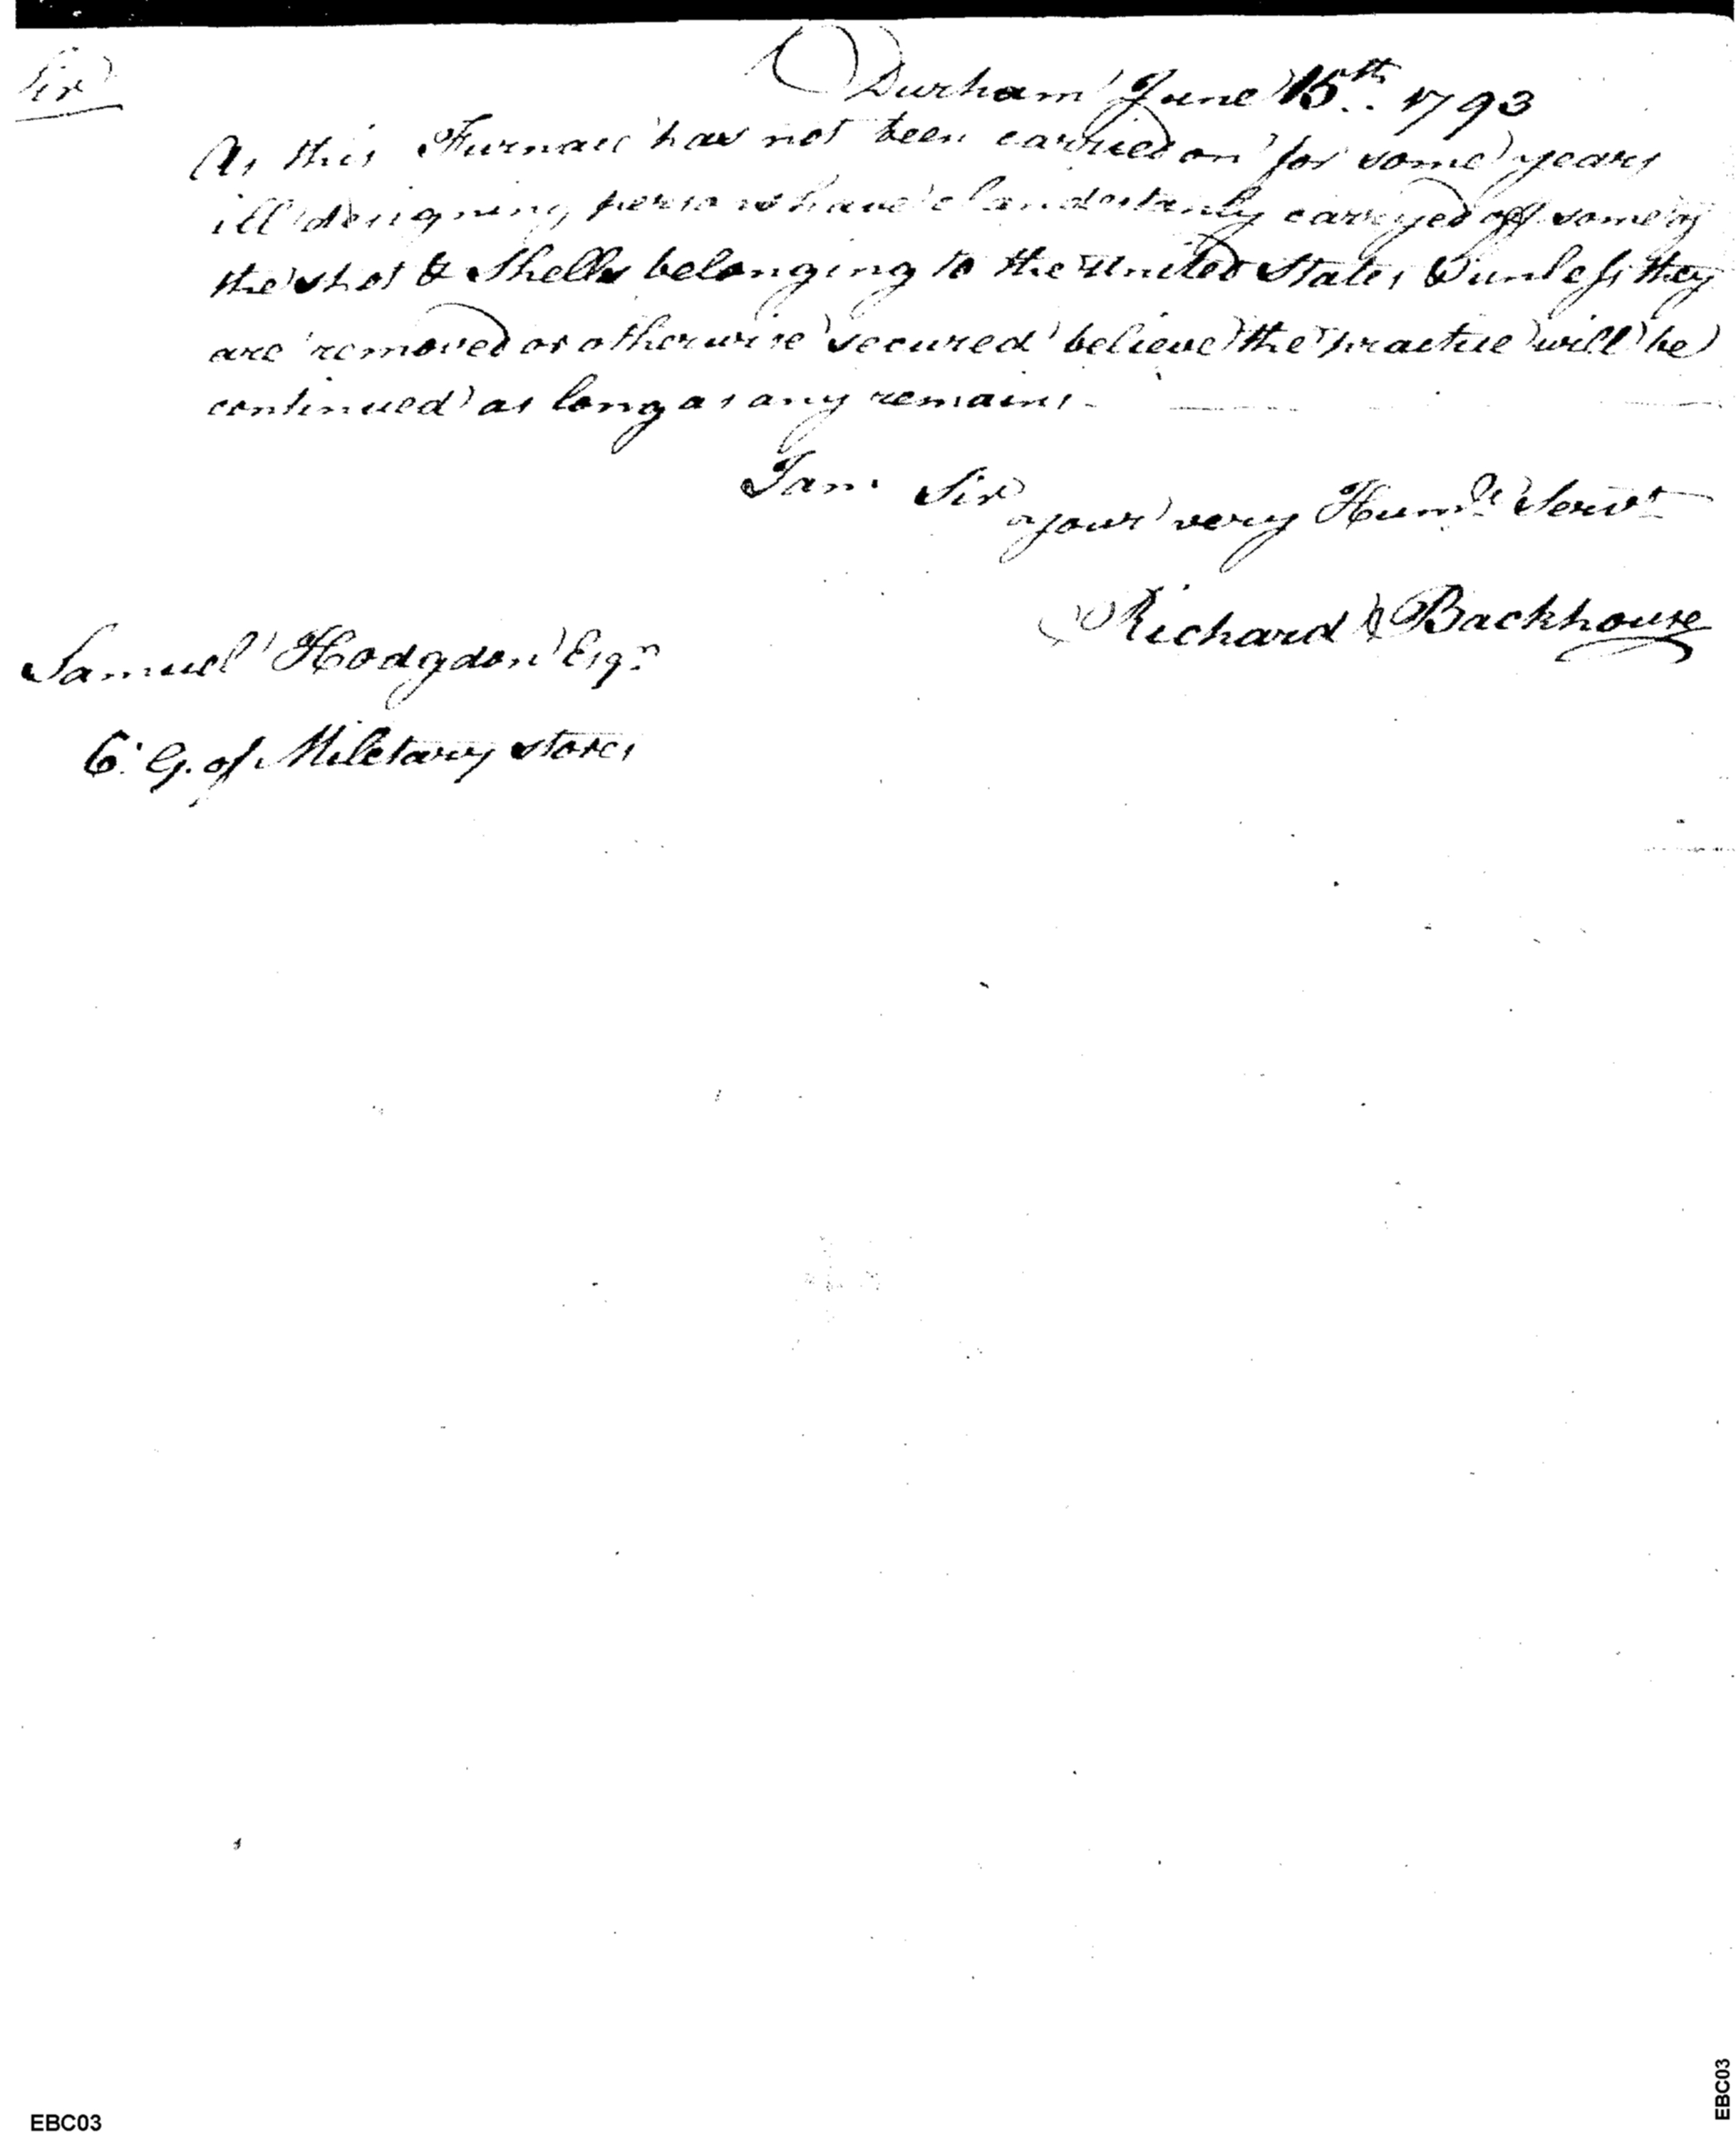 Durham June 15th. 1793
Sir
As this Furnace has not been carried on for some years
ill designing persons have clandestanly carryed off some of
the shot & Shells belonging to the United States & unless they
are removed or otherwise secured believe the practice will be
continued as long as any remains.
I am Sir
your very Humle Servt
Richard Backhouse
Samuel Hodgdon Esqr
C. G. of Miletary stores
EBC03
EBC03